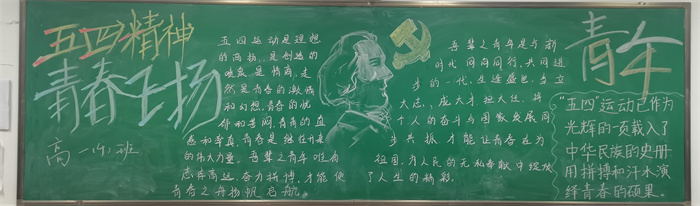 五四精神
青春飞扬
高一(6)班
五四运动是理想
的高扬,是创造的
喷发,是情商,是
然是青春的激情
和幻想,青春的忧
郁和苦闷,青青的直
感和率真,青春是继往开来
的伟大力量。吾辈之青年唯有
志存高远,奋力拼搏,才能使
青春之舟扬帆启航。
吾辈之青年是与新
时代同向同行、共同进
步的一代,生逢盛世,当立
大志、成大才、担大任,将
个人的奋斗与国家发展同
步共振,才能让青春在为
祖国,为人民的无私奉献中绽放
了人生的精彩。
青年
“五四”运动已作为
光辉的一页载入了
中华民族的史册
用拼搏和汗水演
绎青春的硕果。